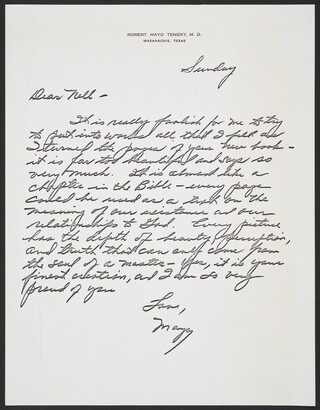 ROBERT MAYO TENERY, M. D.
WAXAHACHIE, TEXAS
Sunday
Dear Nell –
It is really foolish for me to try
to put into words all that I felt as
I turned the pages of your new book –
it is far too beautiful and says so
very much. It is almost like a
chapter in the Bible – every page
could be used as a text on the
meaning of our existence and our
relationship to God. Every picture
has the depth of beauty, perception,
and truth that can only come from
the soul of a master – Yes, it is your
finest creation, and I am so very
proud of you
Love,
Mayo